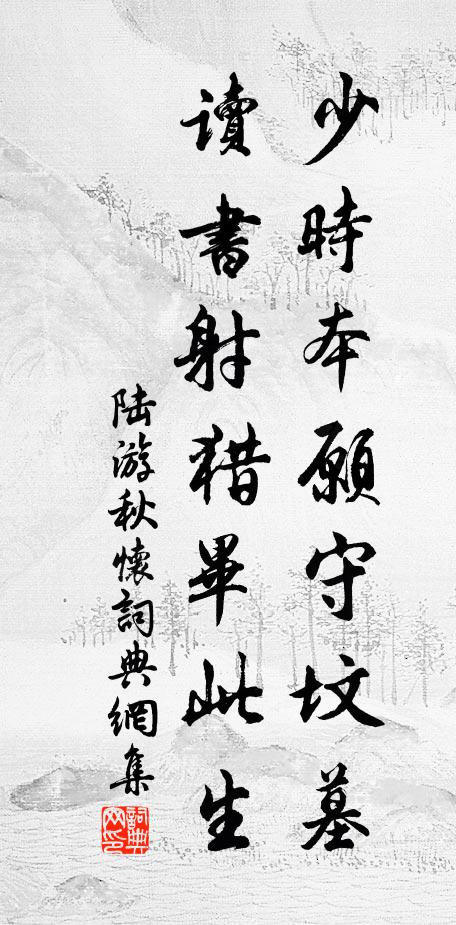 少時本願守墳墓
讀書射猎畢此生
陆游秋懷詞典網集
詞典網印